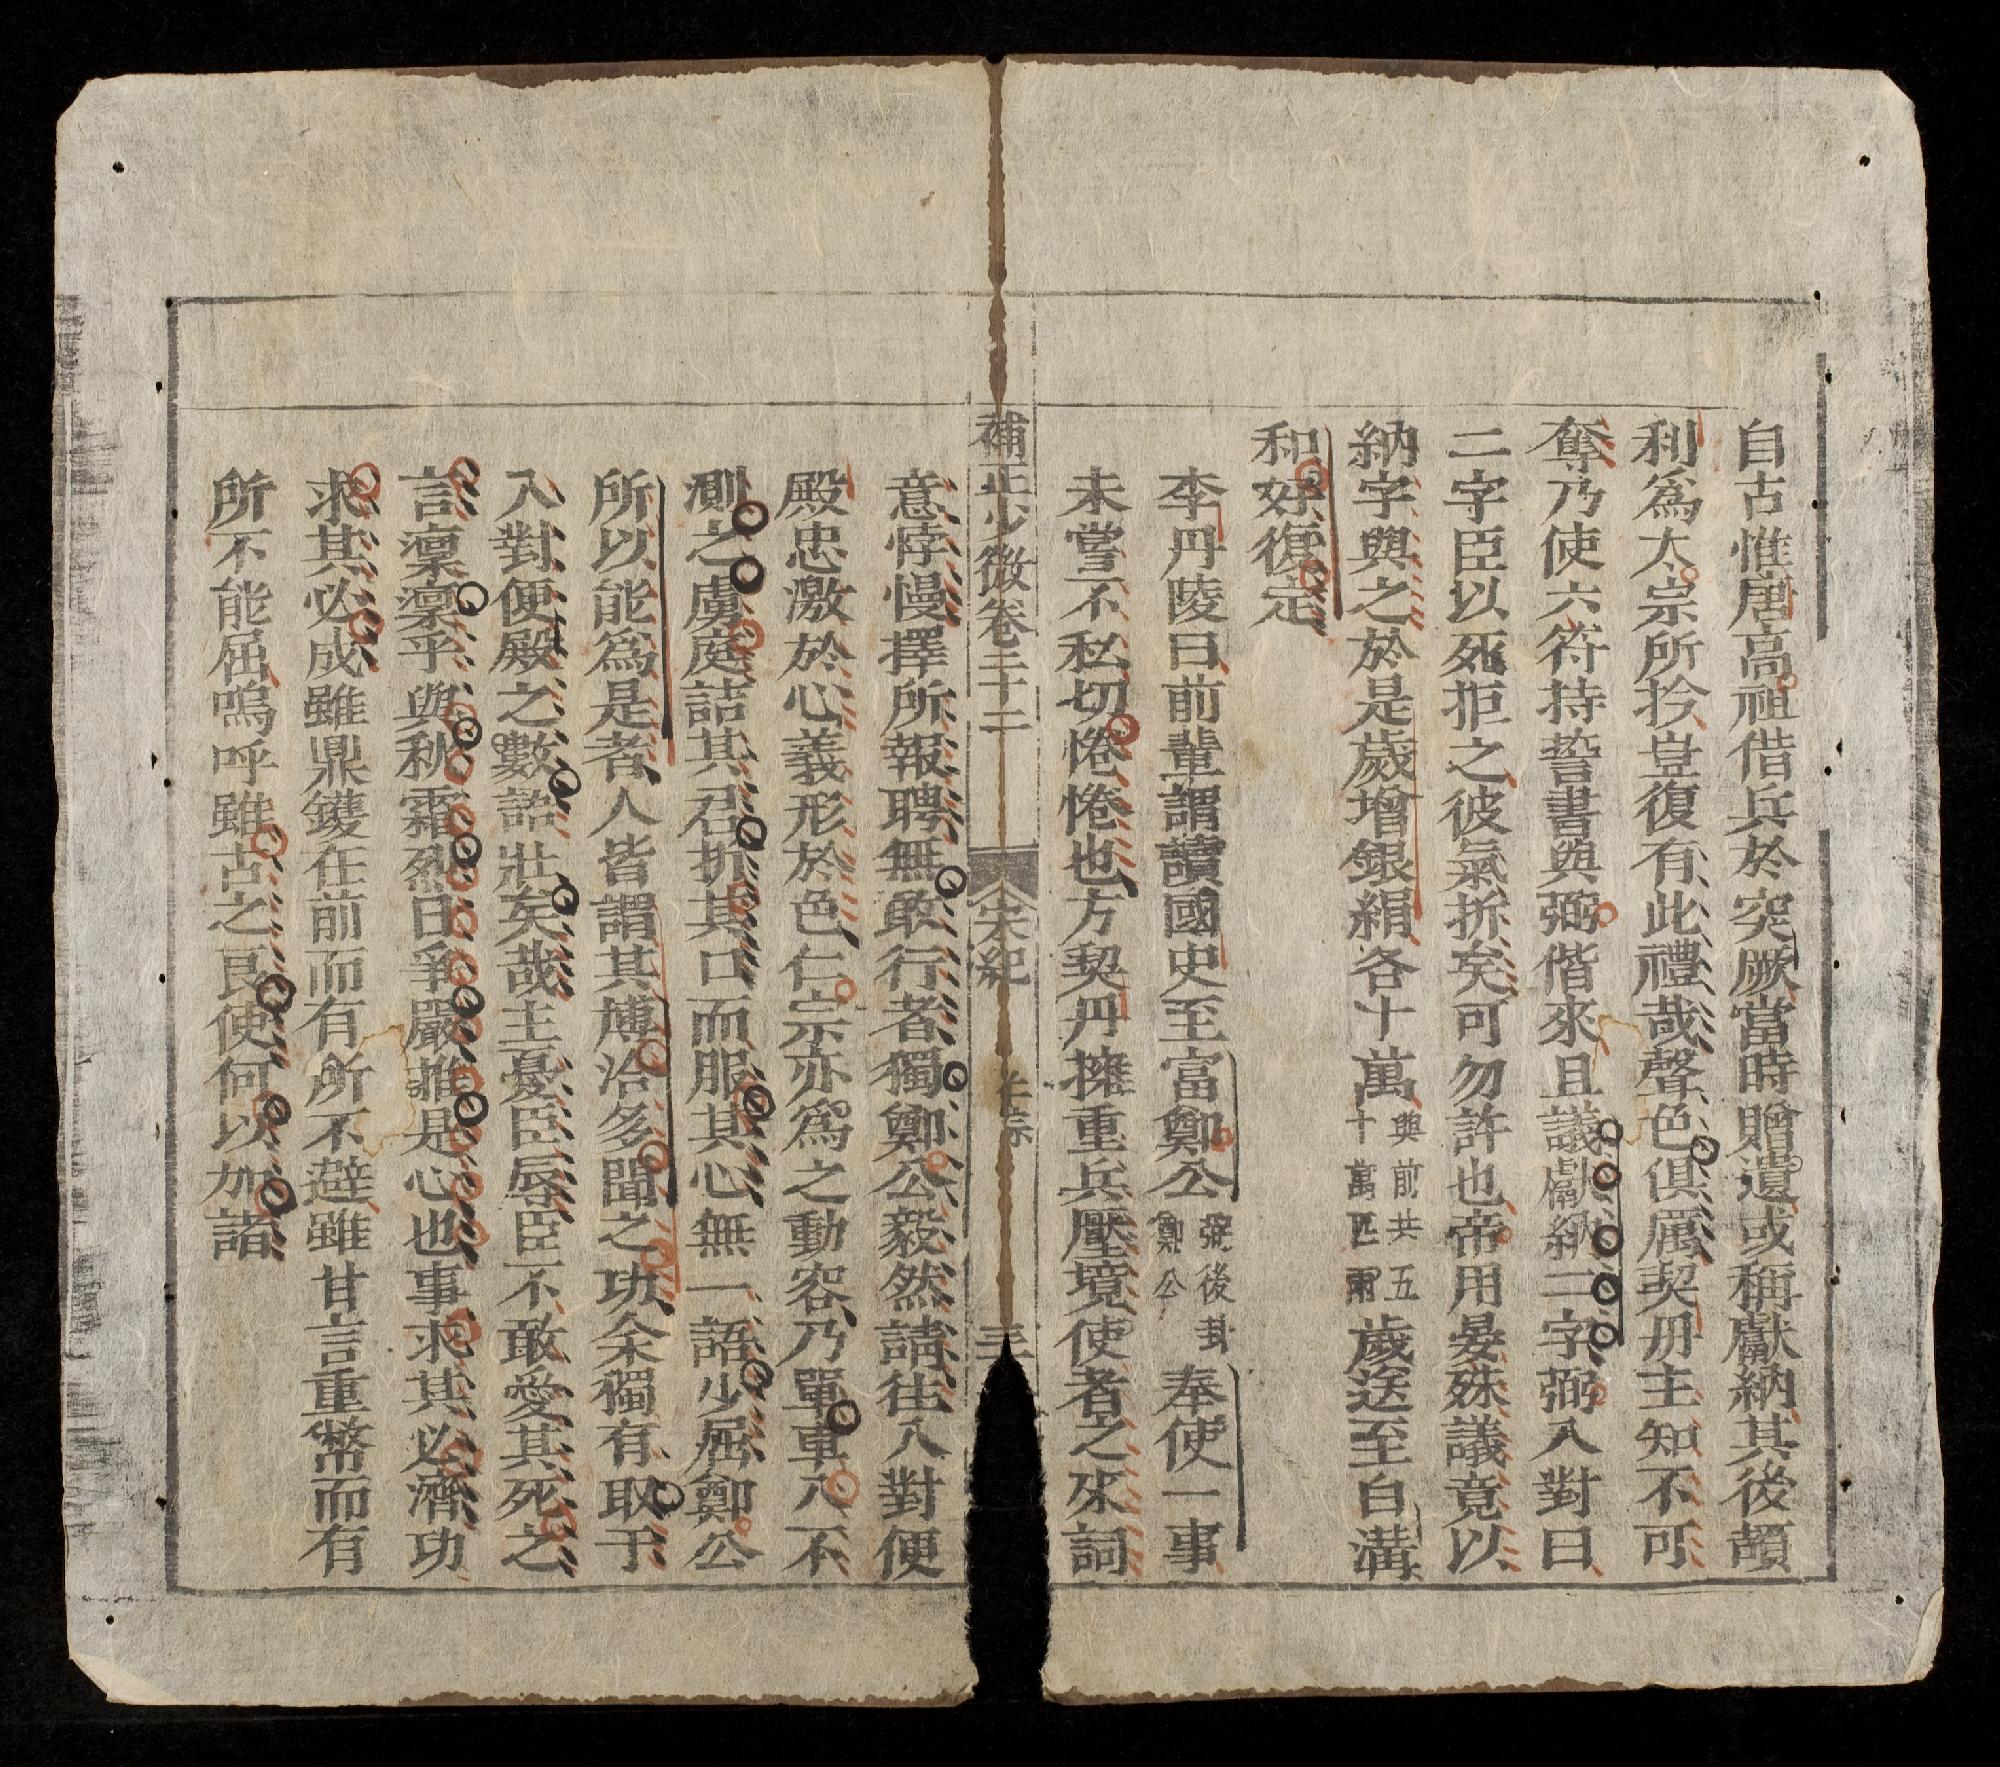 自古惟唐高祖借兵於突厥當時贈遺或稱獻納其後頡
利爲太宗所擒豈復有此禮哉聲色俱厲契丹主知不可
奪乃使六符持誓書與弼偕來且議獻納二字弼入對曰
二字臣以死拒之彼氣折矣可勿許也帝用晏殊議竟以
納字與之於是歲增銀絹各十萬與前共五十萬匹兩歲送至白溝
和好復定
李丹陵曰前輩謂讀國史至富鄭公弼後封鄭公奉使一事
未嘗不私切惓惓也方契丹擁重兵壓境使者之來詞
補正少微卷二十二 宋紀 仁宗 三
意悖慢擇所報聘無敢行者獨鄭公毅然請往入對便
殿忠激於心義形於色仁宗亦爲之動容乃單車入不
測之虜庭詰其君折其口而服其心無一語少屈鄭公
所以能爲是者人皆謂其博洽多聞之功余獨有取于
入對便殿之數語壯矣哉主憂臣辱臣不敢愛其死之
言凜凜乎與秋霜烈日爭嚴推是心也事求其必濟功
求其必成雖鼎鑊在前而有所不避雖甘言重幣而有
所不能屈嗚呼雖古之良使何以加諸